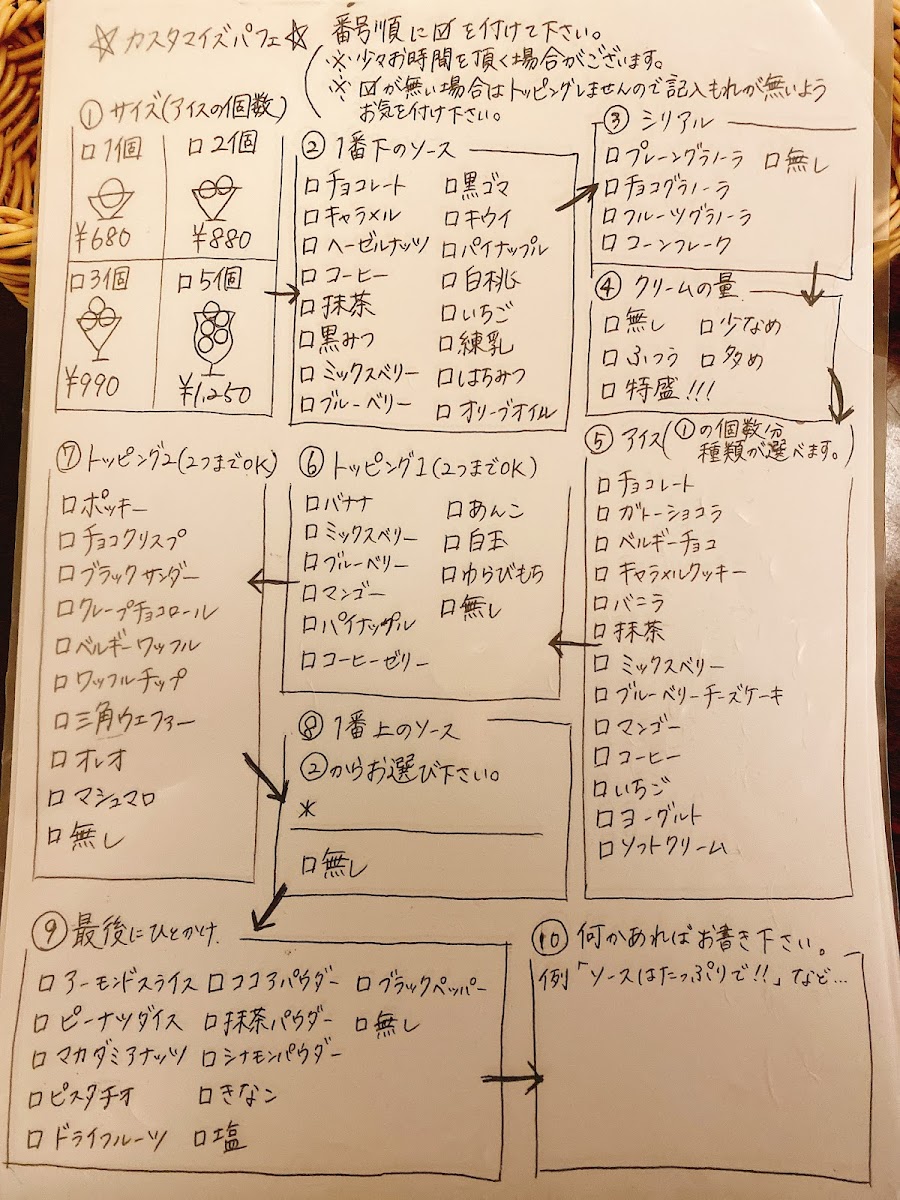 ☆カスタマイズパフェ☆
番号順に☑を付けて下さい。
※少々お時間を頂く場合がございます。
※☑が無い場合はトッピングしませんので記入もれが無いよう
お気を付け下さい。
①サイズ(アイスの個数)
□1個 □2個
¥680 ¥880
□3個 □5個
¥990 ¥1,250
②1番下のソース
□チョコレート □黒ゴマ
□キャラメル □キウイ
□ヘーゼルナッツ □パイナップル
□コーヒー □白桃
□抹茶 □いちご
□黒みつ □練乳
□ミックスベリー □はちみつ
□ブルーベリー □オリーブオイル
③シリアル
□プレーングラノーラ □無し
□チョコグラノーラ
□フルーツグラノーラ
□コーンフレーク
④クリームの量
□無し □少なめ
□ふつう □多め
□特盛!!!
⑤アイス(①の個数分
種類が選べます。)
□チョコレート
□ガトーショコラ
□ベルギーチョコ
□キャラメルクッキー
□バニラ
□抹茶
□ミックスベリー
□ブルーベリーチーズケーキ
□マンゴー
□コーヒー
□いちご
□ヨーグルト
□ソフトクリーム
⑥トッピング1(2つまでOK)
□バナナ □あんこ
□ミックスベリー □白玉
□ブルーベリー □わらびもち
□マンゴー □無し
□パイナップル
□コーヒーゼリー
⑦トッピング2(2つまでOK)
□ポッキー
□チョコクリスプ
□ブラックサンダー
□クレープチョコロール
□ベルギーワッフル
□ワッフルチップ
□三角ウエファー
□オレオ
□マシュマロ
□無し
⑧1番上のソース
②からお選び下さい。
*
□無し
⑨最後にひとかけ
□アーモンドスライス □ココアパウダー □ブラックペッパー
□ピーナツダイス □抹茶パウダー □無し
□マカダミアナッツ □シナモンパウダー
□ピスタチオ □きなこ
□ドライフルーツ □塩
⑩何かあればお書き下さい。
例「ソースはたっぷりで!!」など…